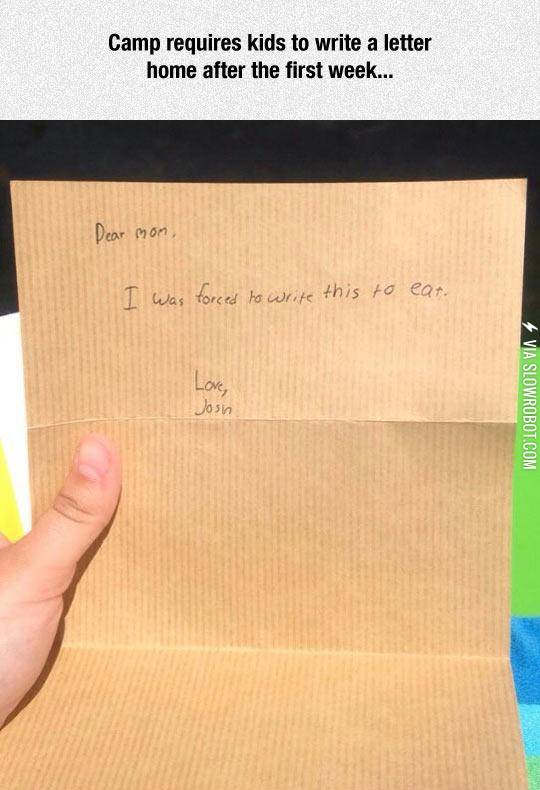 Camp requires kids to write a letter
home after the first week...
Dear mom,
I was forced to write this to eat.
Love,
Josh
VIA SLOWROBOT.COM